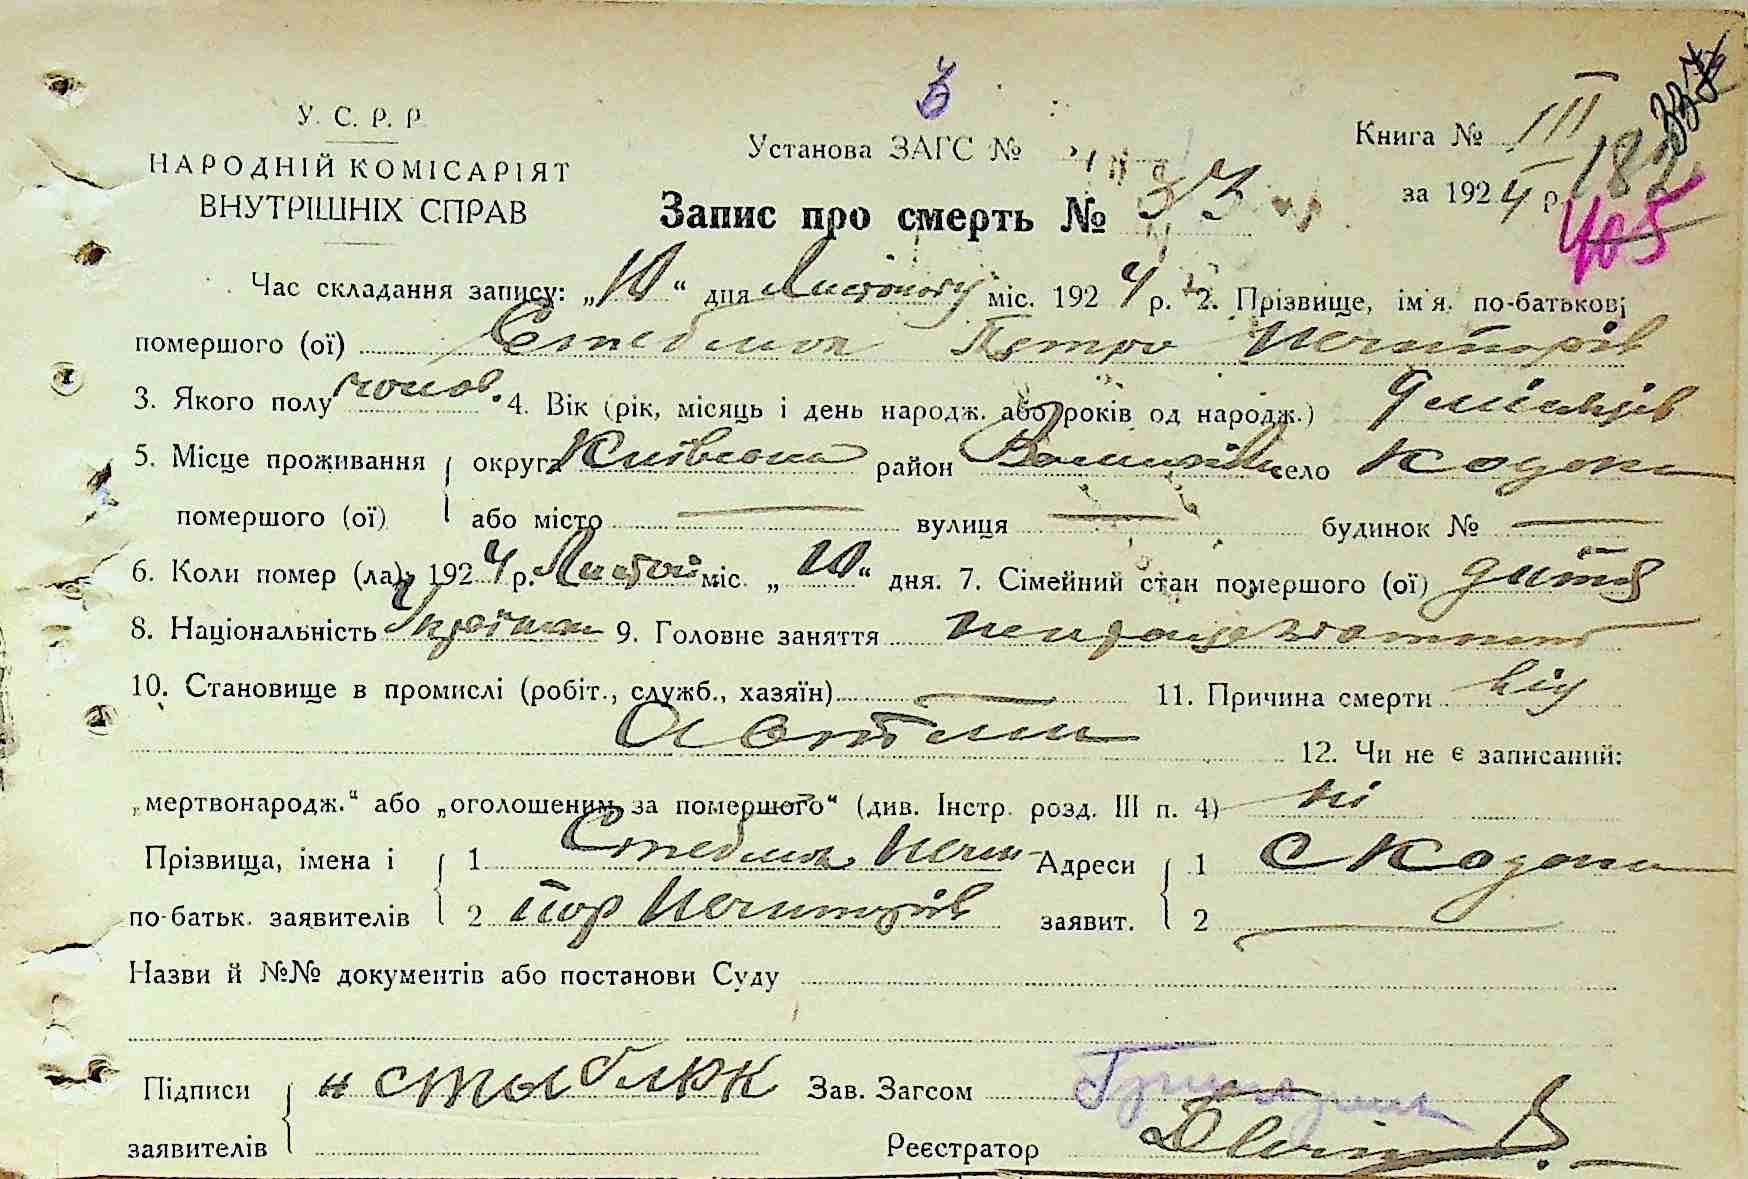 У. С. Р. Р
НАРОДНІЙ КОМІСАРІЯТ
ВНУТРІШНІХ СПРАВ
Установа ЗАГС №
Книга № III
Запис про смерть № 33
за 1924 р.
182
405
Час складання запису: „10" дня Листопаду міс. 1924 р. 2. Прізвище, ім'я, по-батькові
помершого (ої) Стеблюк Петро Нечипорів
3. Якого полу чолов. 4. Вік (рік, місяць і день народж. або років од народж.) 9 місяців
5. Місце проживання округа Київська район село Кодаки
помершого (ої) або місто — вулиця — будинок № —
6. Коли помер (ла) 1924 р. Листоп міс. „10" дня. 7. Сімейний стан помершого (ої) дитя
8. Національність 9. Головне заняття
10. Становище в промислі (робіт., служб., хазяїн) — 11. Причина смерти від
12. Чи не є записаний:
„мертвонародж." або „оголошеним за помершого" (див. Інстр. розд. III п. 4) ні
Прізвища, імена і 1 Стеблюк Нечи- Адреси 1 С Кодаки
по-батьк. заявителів 2 пор Нечипорів заявит. 2 —
Назви й №№ документів або постанови Суду
Підписи н стыблюк Зав. Загсом
заявителів Реєстратор